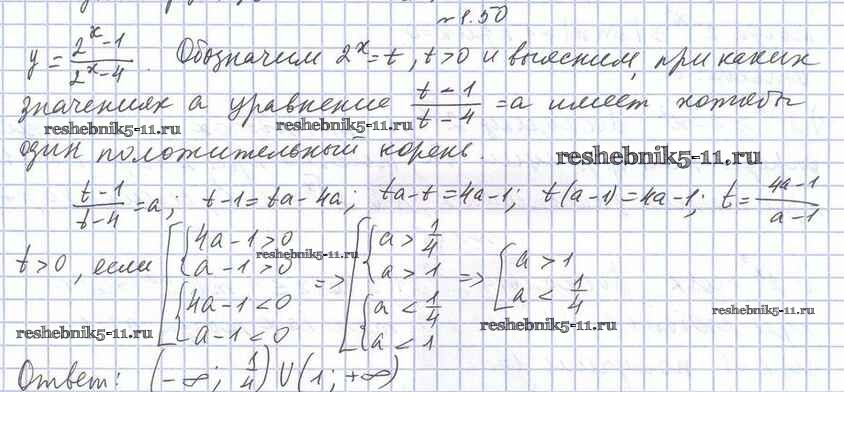 №1.50
y = (2^x-1)/(2^x-4). Обозначим 2^x=t, t>0 и выясним, при каких
значениях а уравнение (t-1)/(t-4) = a имеет хотябы
reshebnik5-11.ru reshebnik5-11.ru
один положительный корень.
reshebnik5-11.ru
(t-1)/(t-4) = a; t-1=ta-4a; ta-t=4a-1; t(a-1)=4a-1; t=(4a-1)/(a-1)
t>0, если [ { 4a-1>0 a-1>0 { 4a-1<0 a-1<0 => [ { a>1/4 a>1 { a<1/4 a<1 => [ a>1 a<1/4
reshebnik5-11.ru
reshebnik5-11.ru
reshebnik5-11.ru
reshebnik5-11.ru
Ответ: (-∞; 1/4)∪(1; +∞)